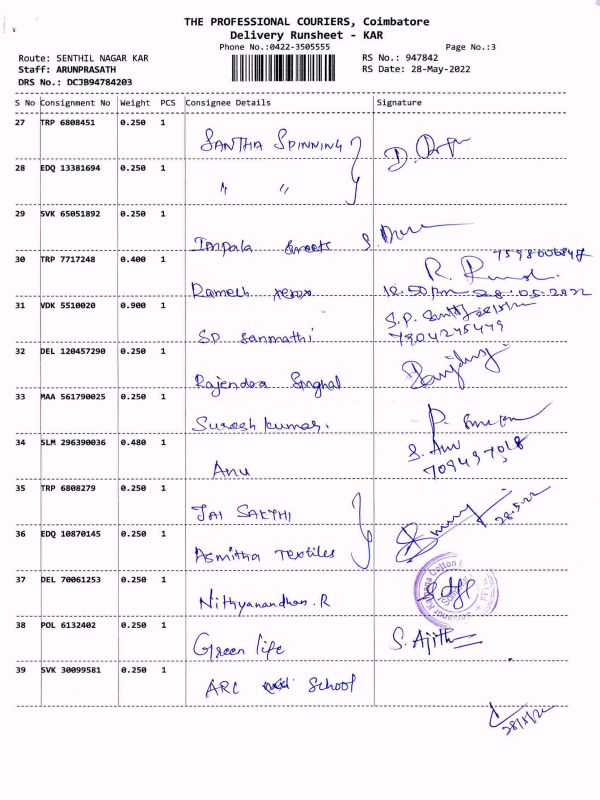 THE PROFESSIONAL COURIERS, Coimbatore
Delivery Runsheet - KAR
Phone No.:0422-3505555 Page No.:3
Route: SENTHIL NAGAR KAR RS No.: 947842
Staff: ARUNPRASATH RS Date: 28-May-2022
DRS No.: DCJB94784203
S No Consignment No Weight PCS Consignee Details Signature
27 TRP 6808451 0.250 1
SANTHA SPINNING
28 EDQ 13381694 0.250 1
" "
29 SVK 65051892 0.250 1
Impala
30 TRP 7717248 0.400 1 7598006847
Ramesh xerox 12.50pm 28.05.2022
31 VDK 5510020 0.900 1 S.P.
SP Sanmathi 7904245449
32 DEL 120457290 0.250 1
Rajendra Singhal
33 MAA 561790025 0.250 1
Suresh kumar.
34 SLM 296390036 0.480 1 S. Anu
Anu 7094497018
35 TRP 6808279 0.250 1
JAI SAKTHI 28.5.22
36 EDQ 10870145 0.250 1
Asmitha Textiles
37 DEL 70061253 0.250 1
Nithyanandhan.R
38 POL 6132402 0.250 1
Green life S. Ajith
39 SVK 30099581 0.250 1
ARC School
28/5/22